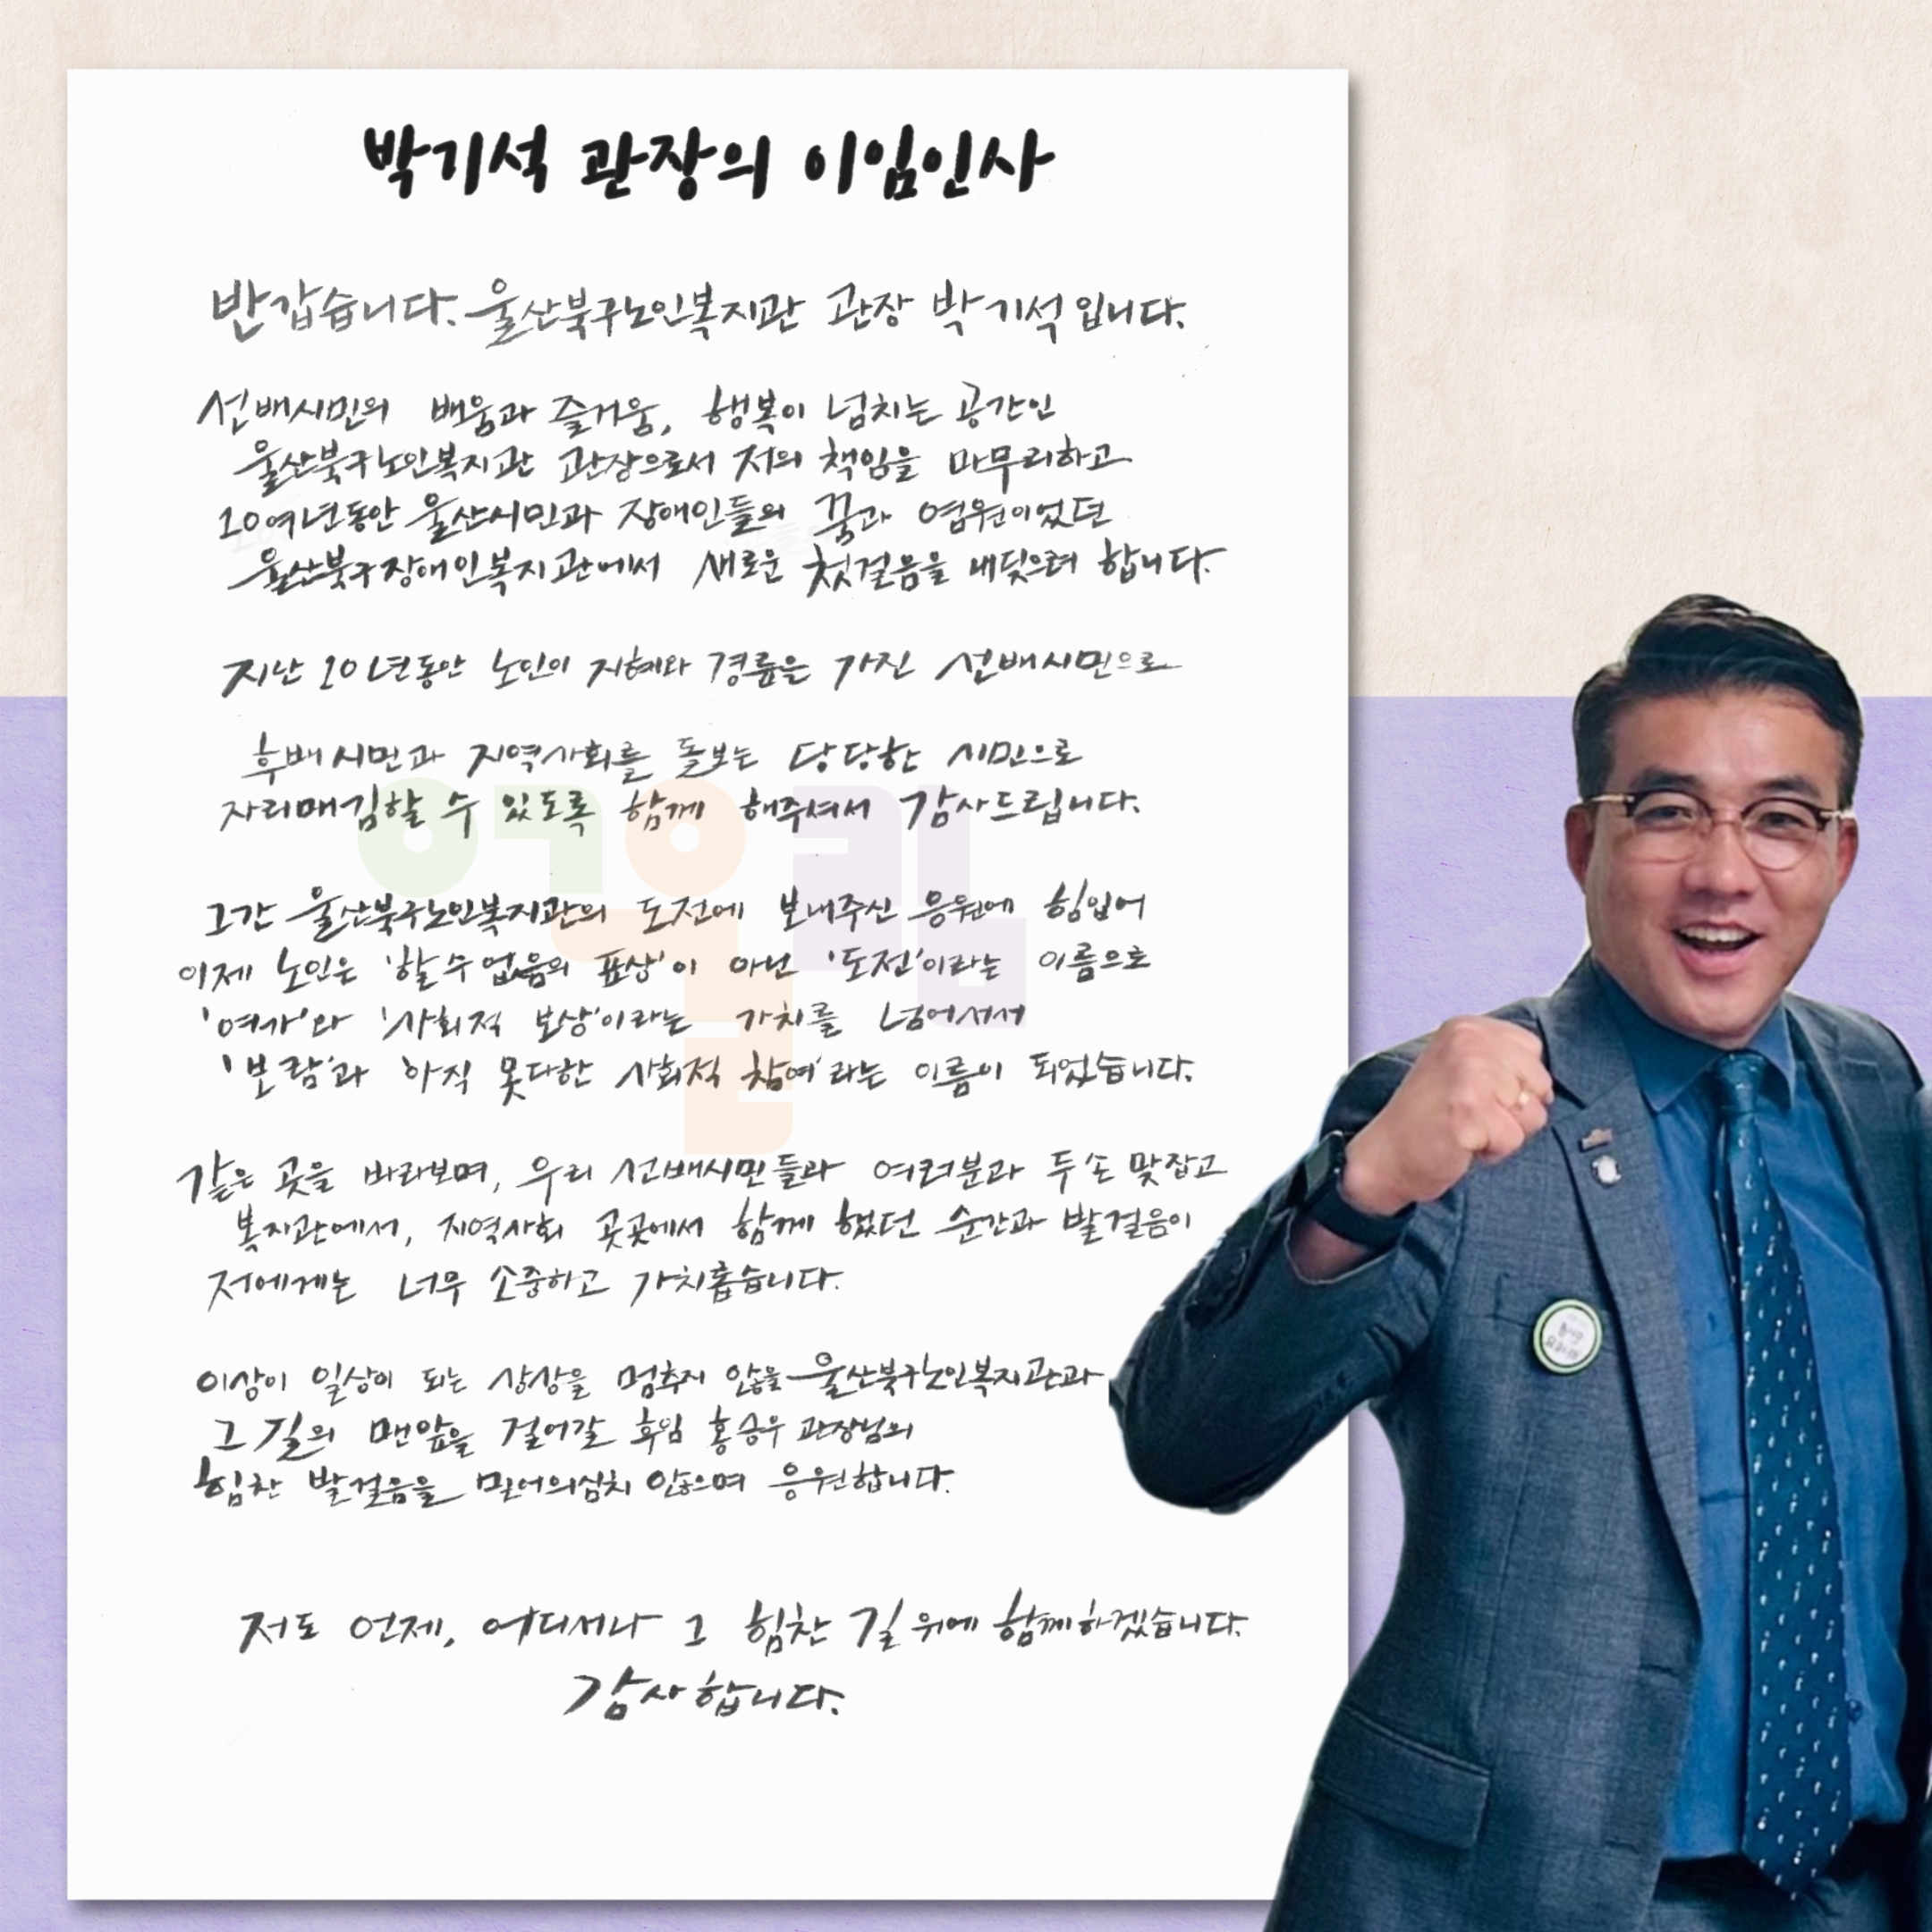 박기석 관장의 이임인사
반갑습니다. 울산북구노인복지관 관장 박기석입니다.
선배시민의 배움과 즐거움, 행복이 넘치는 공간인
울산북구노인복지관 관장으로서 저의 책임을 마무리하고
10여년동안 울산시민과 장애인들의 꿈과 염원이었던
울산북구장애인복지관에서 새로운 첫걸음을 내딛으려 합니다.
지난 10년동안 노인의 지혜와 경륜을 가진 선배시민으로
후배시민과 지역사회를 돌보는 당당한 시민으로
자리매김할 수 있도록 함께 해주셔서 감사드립니다.
그간 울산북구노인복지관의 도전에 보내주신 응원에 힘입어
이제 노인은 '할수없음의 표상'이 아닌 '도전'이라는 이름으로
'여가'와 '사회적 보상'이라는 가치를 넘어서서
'보람'과 '아직 못다한 사회적 참여'라는 이름이 되었습니다.
같은 곳을 바라보며, 우리 선배시민들과 여러분과 두 손 맞잡고
복지관에서, 지역사회 곳곳에서 함께 했던 순간과 발걸음이
저에게는 너무 소중하고 가치롭습니다.
이상이 일상이 되는 상상을 멈추지 않을 울산북구노인복지관과
그 길의 맨앞을 걸어갈 후임 홍승우 관장님의
힘찬 발걸음을 믿어의심치 않으며 응원합니다.
저도 언제, 어디서나 그 힘찬 길 위에 함께하겠습니다.
감사합니다.